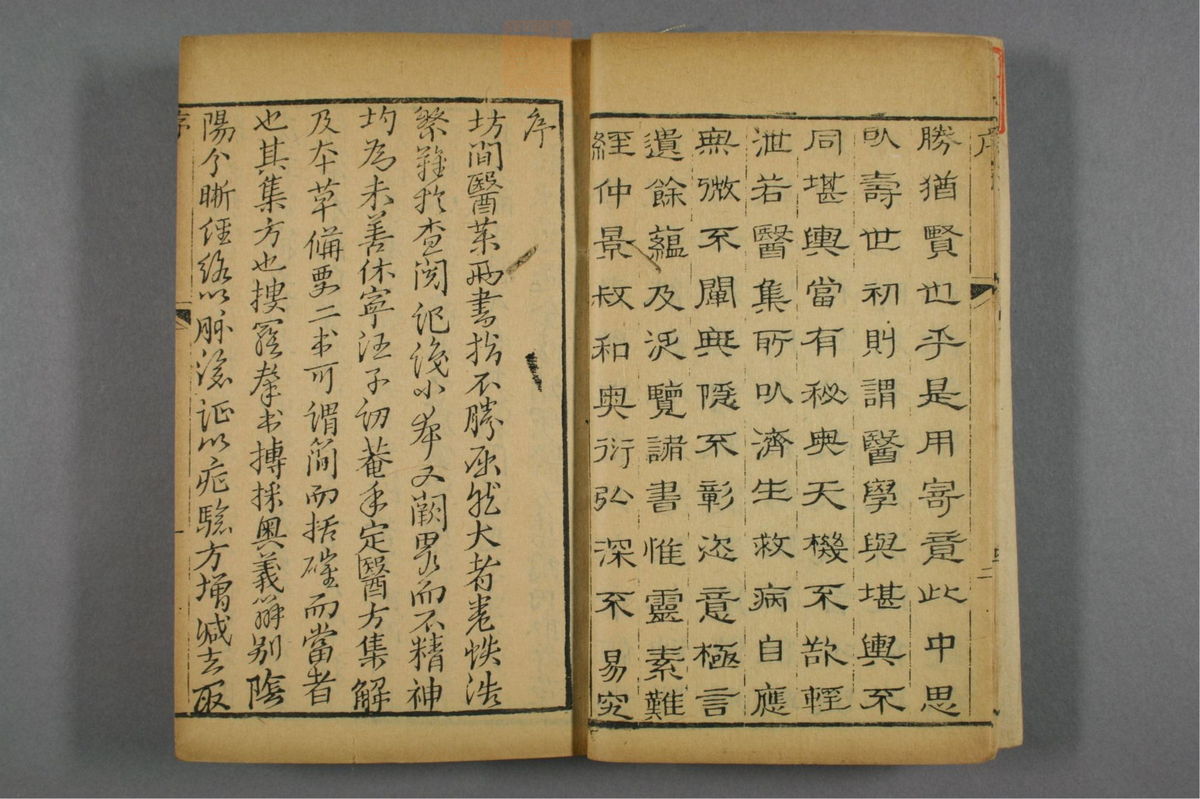 勝猶賢也乎是用寄意此中思
㕥壽世初則謂醫學與堪輿不
同堪輿當有秘典天機不欲輕
泄若醫集所㕥濟生救病自應
無微不闡無隱不彰恣意極言
遺餘蘊及泛覽諸書惟靈素難
經仲景叔和奧衍弘深不易究
序
坊間醫藥兩書指不勝屈然大者卷帙浩
繁難於查閱記誦小帙又闕略而不精神
均為未善休寧汪子訒菴手定醫方集解
及本草備要二書可謂簡而括確而當者
也其集方也摟羅羣書摶採奧義辯別陰
陽分晰經絡以脈證以症驗方增減去取